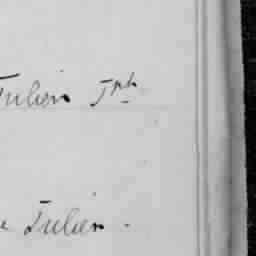 Julien Jph
Julien.